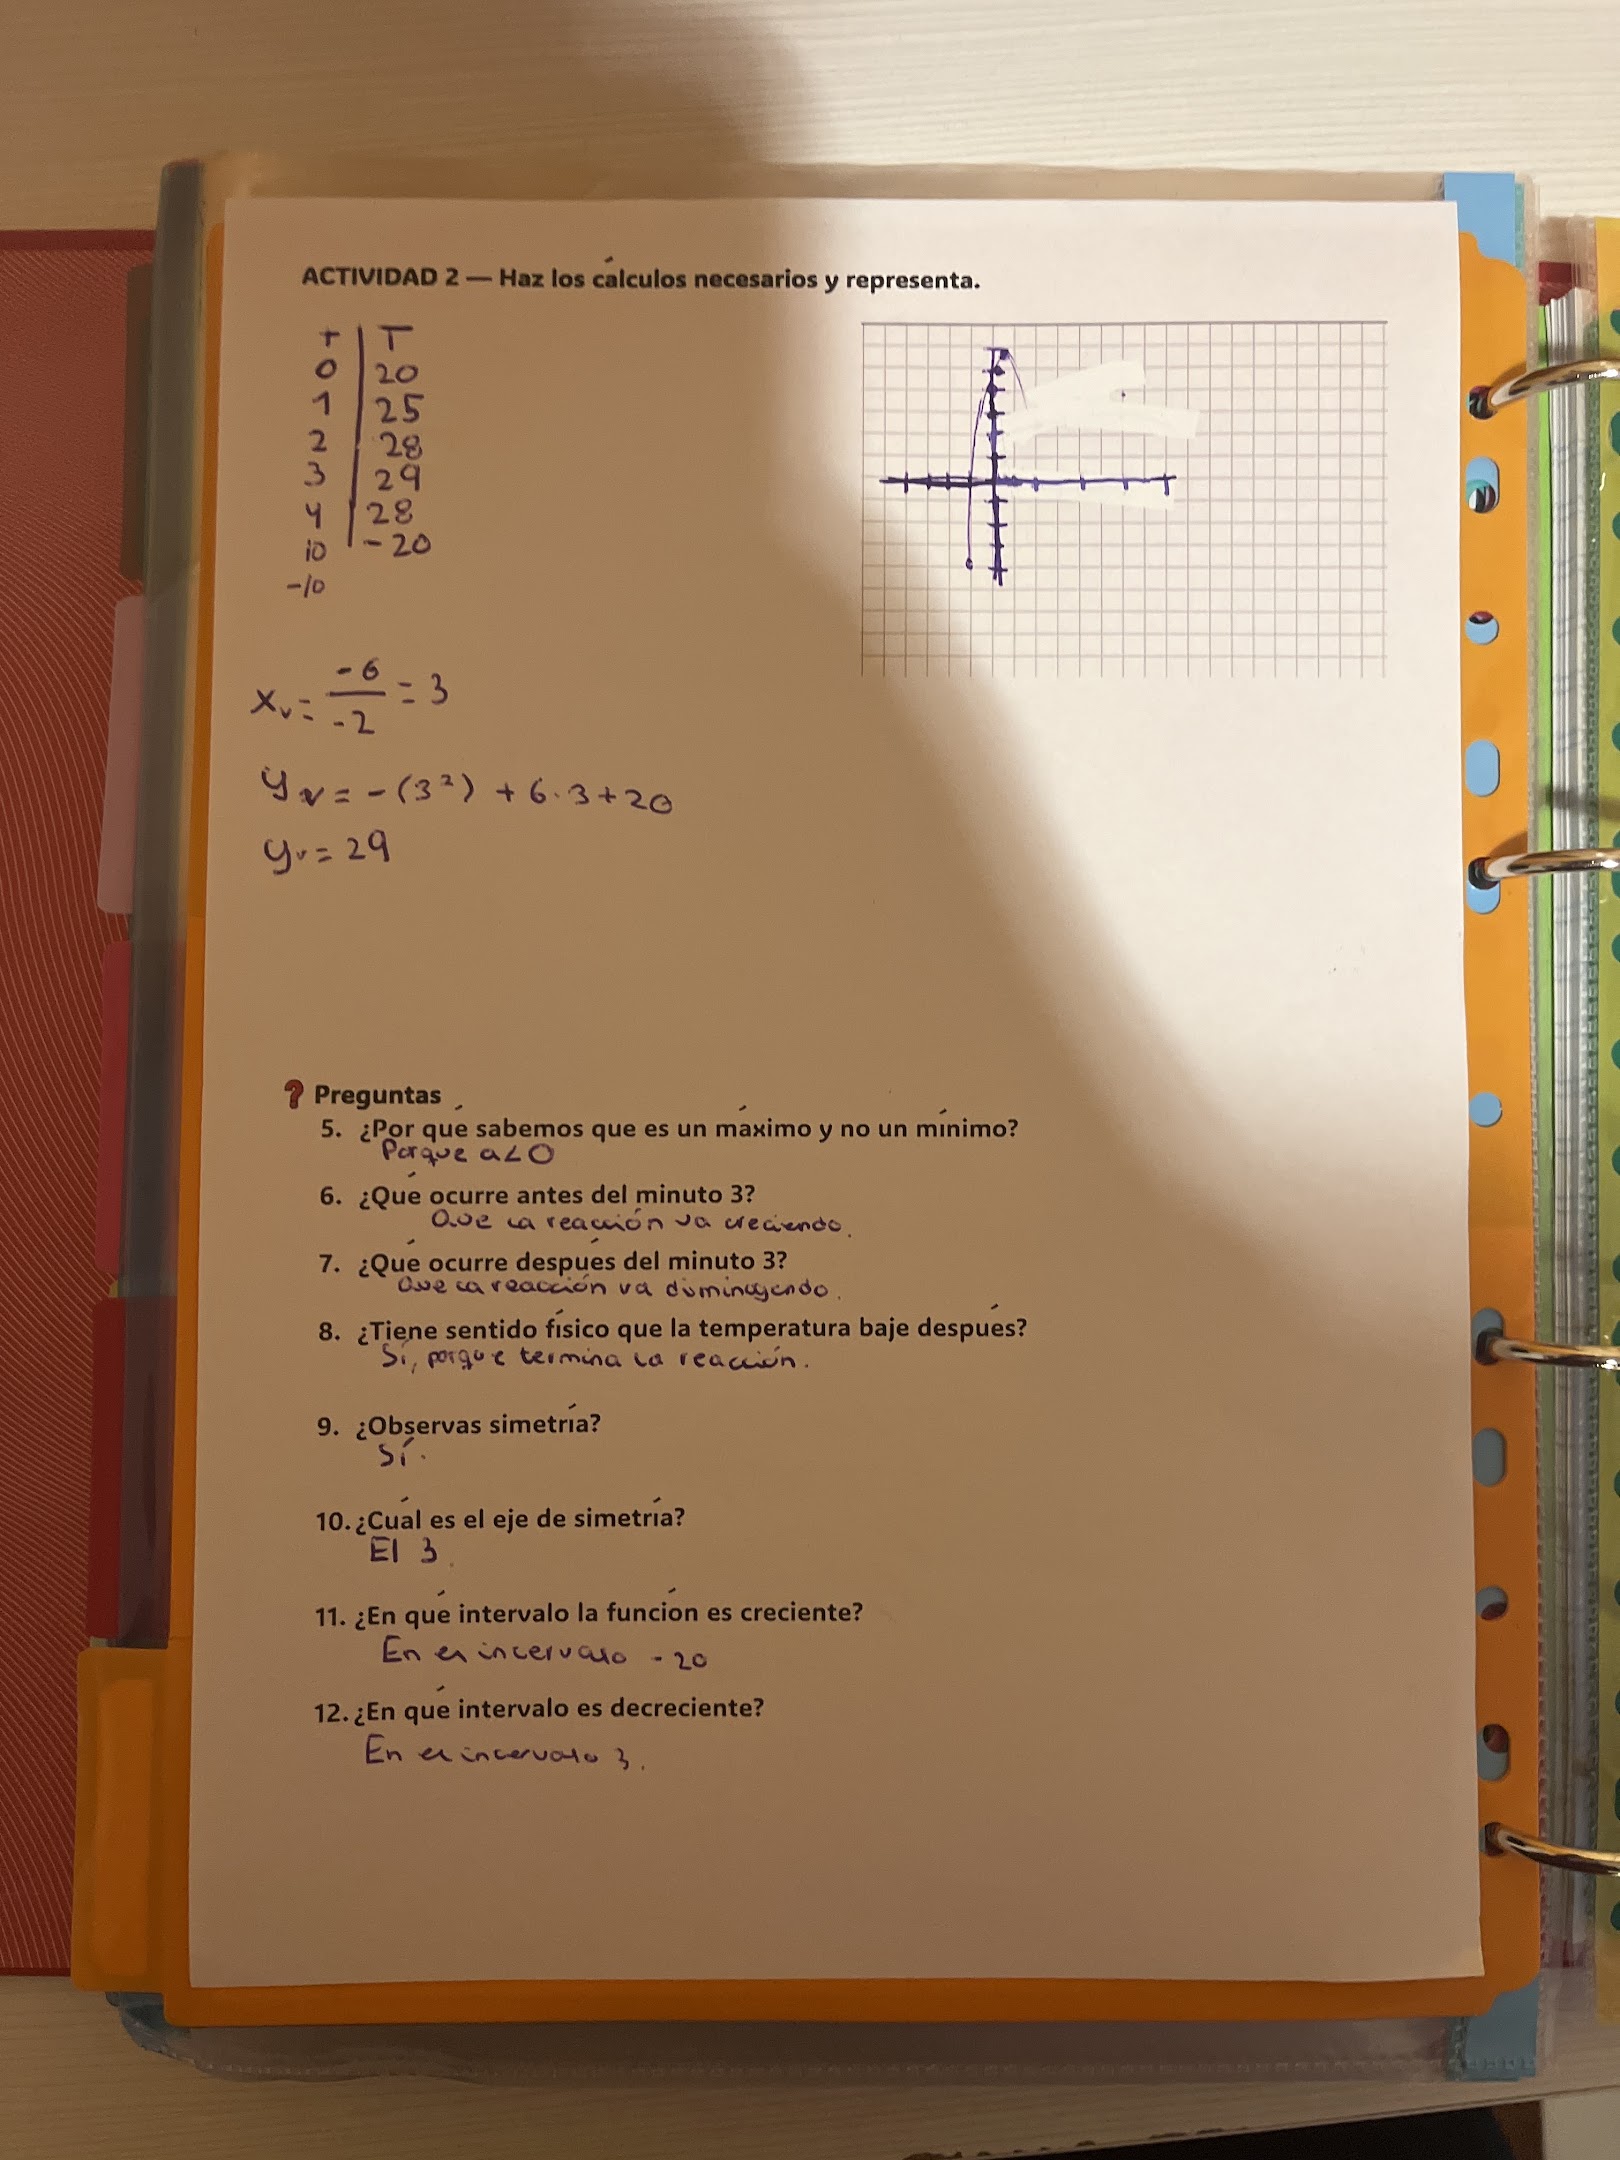 ACTIVIDAD 2 — Haz los cálculos necesarios y representa.
t | T
0 | 20
1 | 25
2 | 28
3 | 29
4 | 28
10 | -20
-10
Xv = -6/-2 = 3
yv = -(3²) + 6·3+20
yv = 29
? Preguntas
5. ¿Por qué sabemos que es un máximo y no un mínimo?
Porque a<0
6. ¿Qué ocurre antes del minuto 3?
Que la reacción va creciendo.
7. ¿Qué ocurre después del minuto 3?
Que la reacción va disminuyendo.
8. ¿Tiene sentido físico que la temperatura baje después?
Sí, porque termina la reacción.
9. ¿Observas simetría?
Sí.
10. ¿Cuál es el eje de simetría?
El 3.
11. ¿En qué intervalo la función es creciente?
En el intervalo -20
12. ¿En qué intervalo es decreciente?
En el intervalo 3.